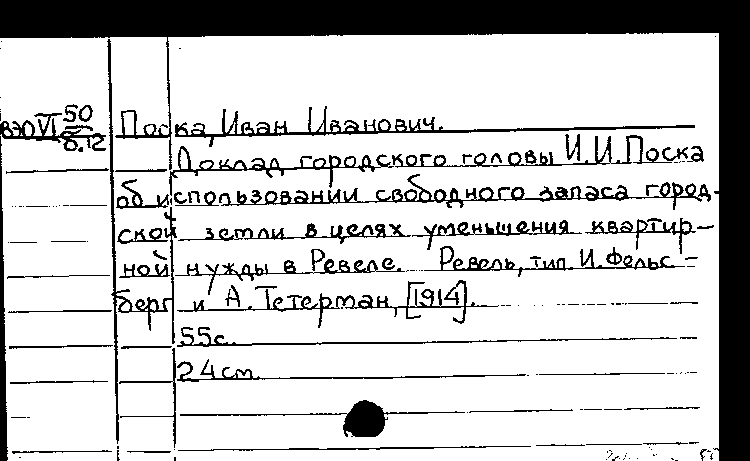 ВЭО VI 50 Поска, Иван Иванович.
б.12
Доклад городского головы И.И.Поска
об использовании свободного запаса город-
ской земли в целях уменьшения квартир-
ной нужды в Ревеле. Ревель, тип. И.Фельс-
берг и А.Тетерман, [1914].
55с.
24см.